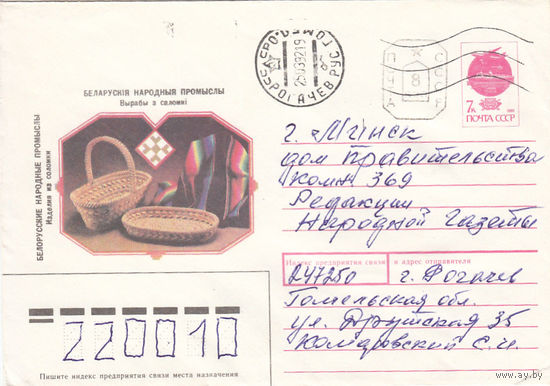 БЕЛАРУСКІЯ НАРОДНЫЯ ПРОМЫСЛЫ
Вырабы з саломкі
БЕЛОРУССКИЕ НАРОДНЫЕ ПРОМЫСЛЫ
Изделия из соломки
РОГАЧЕВ
25039219
СССР
7к
ПОЧТА СССР
г. Минск
дом Правительства
комн. 369
Редакции
Народной Газеты
Индекс предприятия связи и адрес отправителя
247250 г. Рогачев
Гомельская обл.
ул. Друтская 35
Комаровский С.И.
220010
Пишите индекс предприятия связи места назначения
www.ay.by